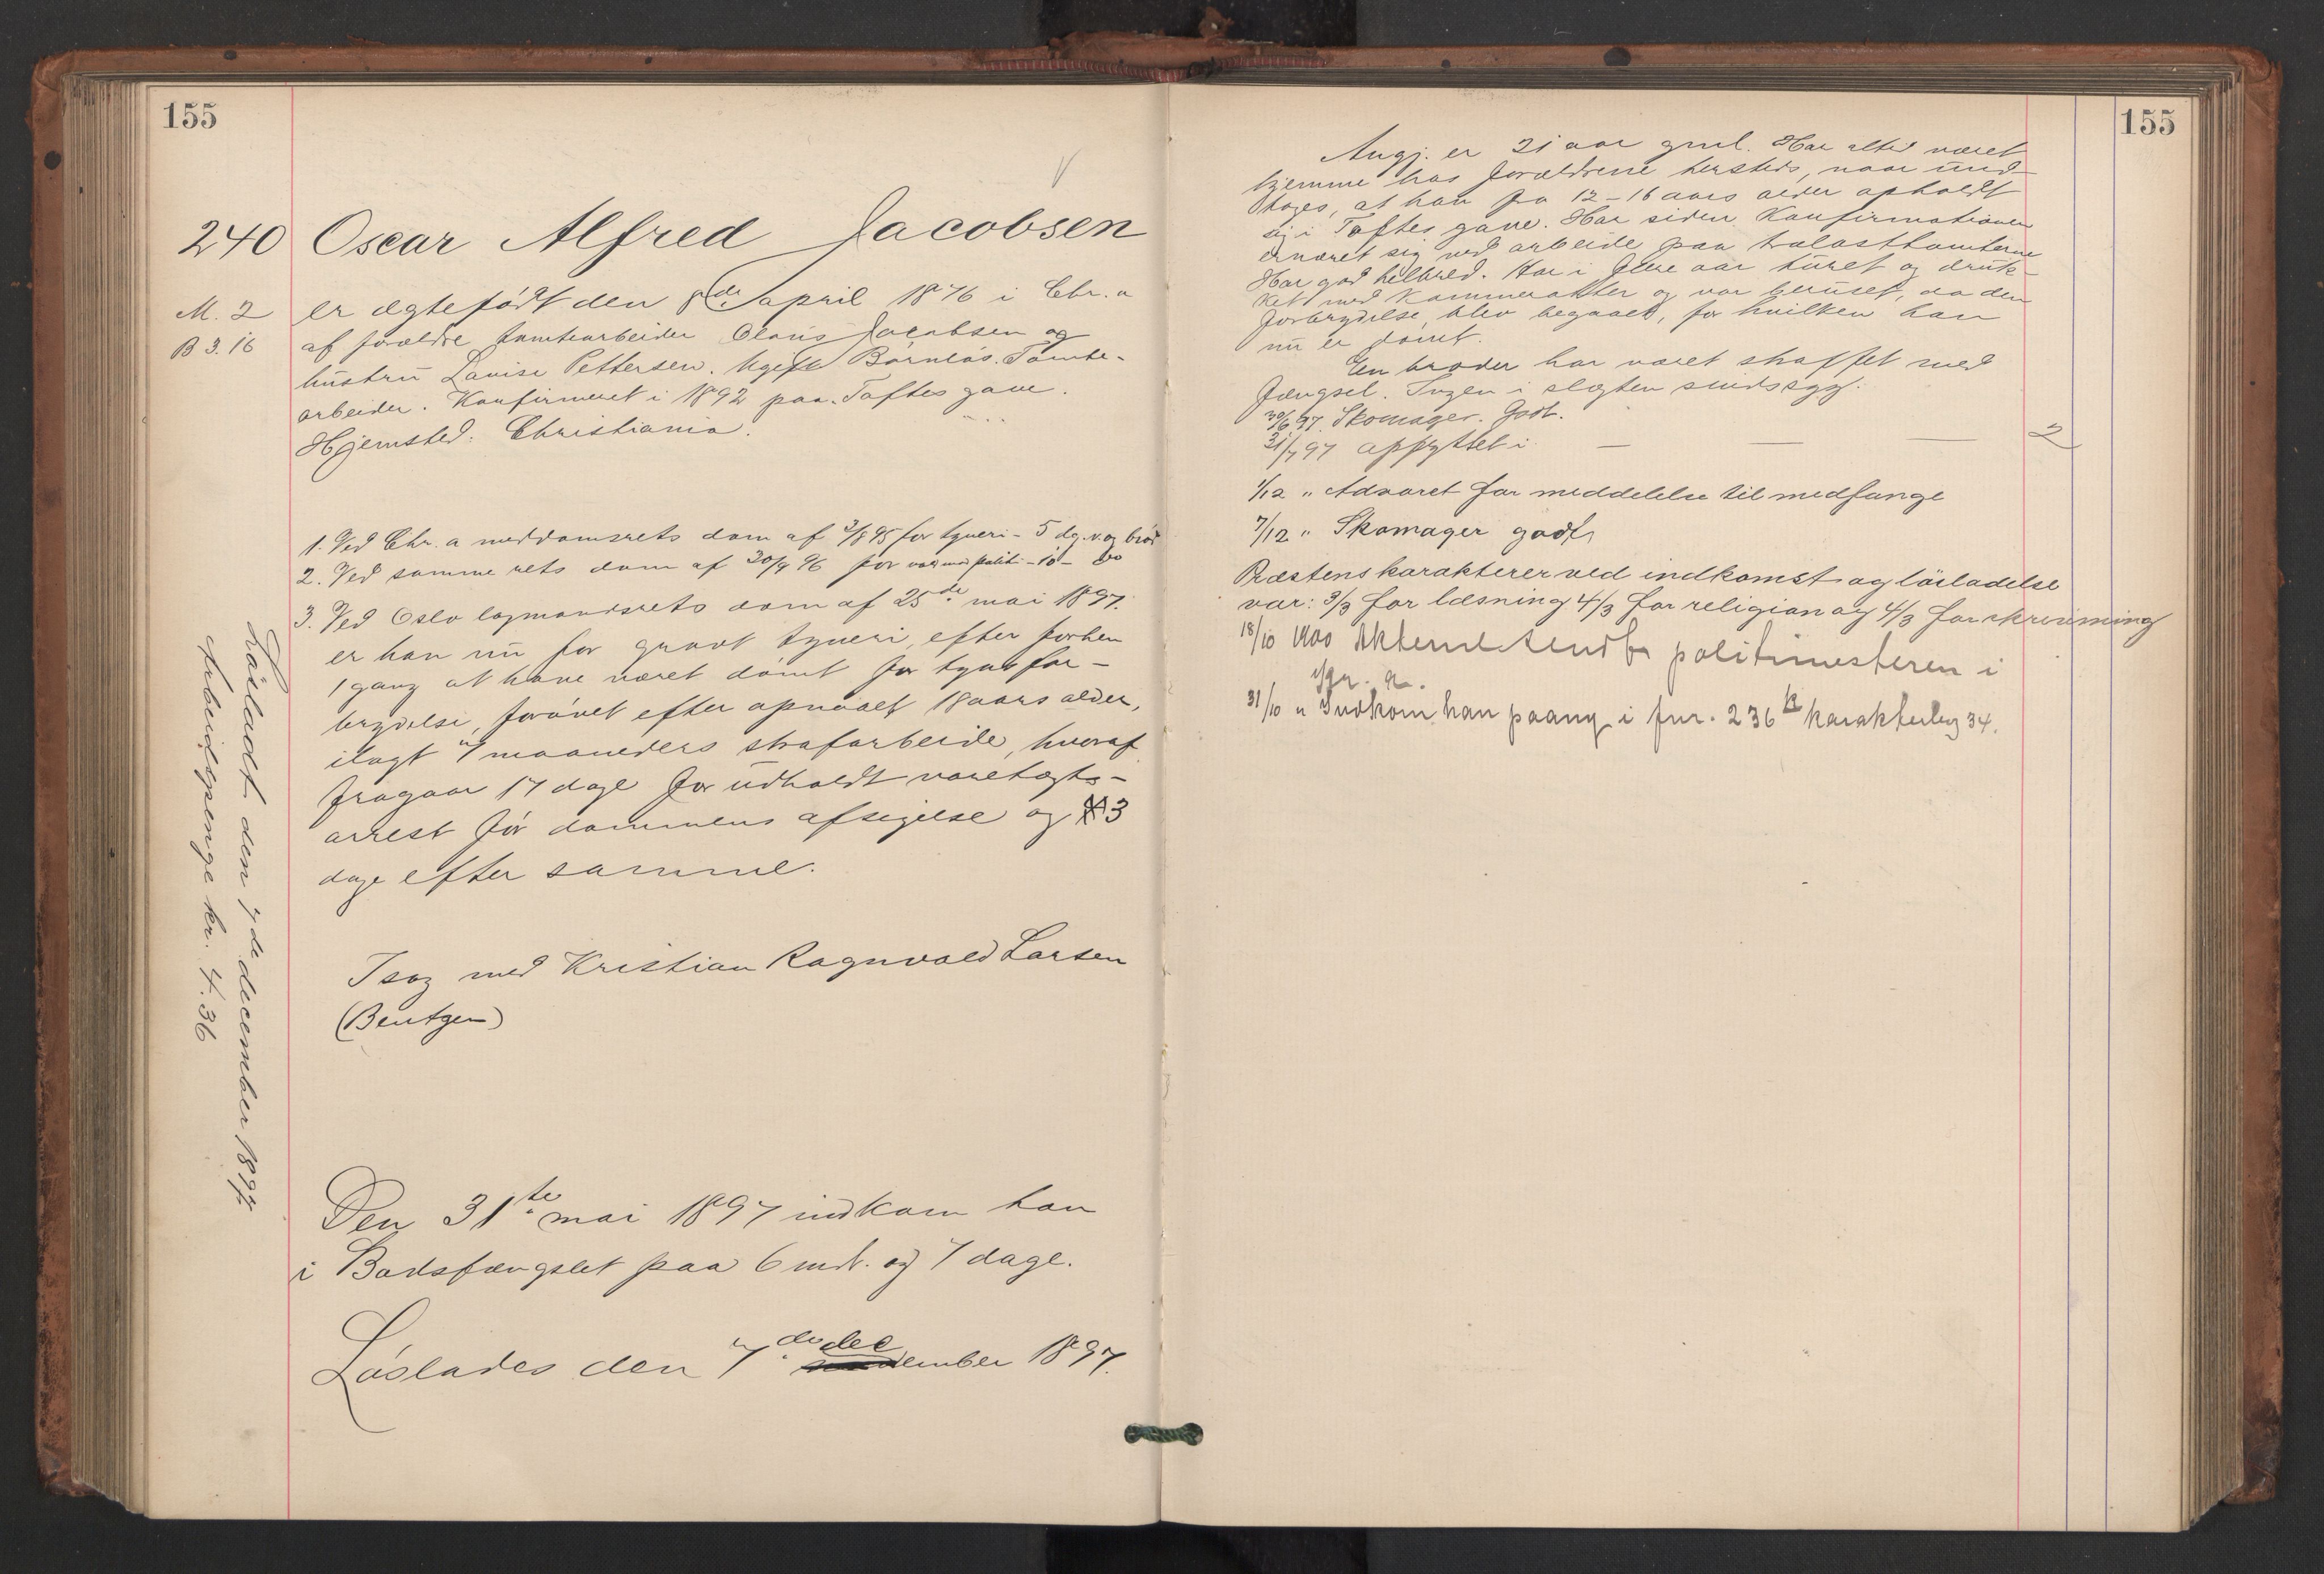 155
240 Oscar Alfred Jacobsen
M. 2
B 3. 16
er ægtefødt den 8de april 1876 i Chr.a
af forældre tomtearbeider Olaus Jacobsen og
hustru Lovise Pettersen. Ugift Barnløs. Tomte-
arbeider. Konfirmeret i 1892 paa Toftes gave.
Hjemsted: Christiania.
1. Ved Chr.a meddomsrets dom af 3/8 95 for tyveri - 5 dg. v. og brød
2. Ved samme rets dom af 30/9 96 for politi - 10 - do
3. Ved Oslo lagmandsrets dom af 25de mai 1897
er han nu for grovt tyveri, efter forhen
1 gang at have været dømt for tyvsfor-
brydelse, forøvet efter opnaaet 18 aars alder,
ilagt 7 maaneders strafarbeide, hvoraf
fragaar 17 dage for udholdt varetægts-
arrest før dommens afsigelse og 3
dage efter samme.
I sag med Kristian Ragnvald Larsen
(Bentgen)
Den 31te mai 1897 indkom han
i Bodsfængslet paa 6 md. og 7 dage.
Løslades den 7de dec ember 1897.
Løsladt den 7de december 1897
Arbeidspenge kr. 4.36
155
Angj. er 21 aar gml. Har altid været
hjemme hos forældrene hersteds, naar und-
tages, at han fra 12-16 aars alder opholdt
sig i Toftes gave. Har siden Konfirmationen
ernæret sig ved arbeide paa trælasttomterne
Har god helbred. Har i flere aar turet og druk-
ket med Kammerater og var beruset, da den
forbrydelse blev begaaet, for hvilken han
nu er dømt.
En broder har været straffet med
Fængsel. Ingen i slægten sindssyg.
30/6 97. Skomager. Godt.
31/7 97 opflyttet i — — — 2
1/12 " Advaret for meddelelse til medfange
7/12 " Skomager godt
Præstens karakterer ved indkomst og løsladelse
var: 3/3 for læsning 4/3 for religion og 4/3 for skrivning
18/10 1900 Akterne sendt politimesteren i
Chr. a.
31/10 " Indkom han paany i fnr. 236 karakterbog 34.